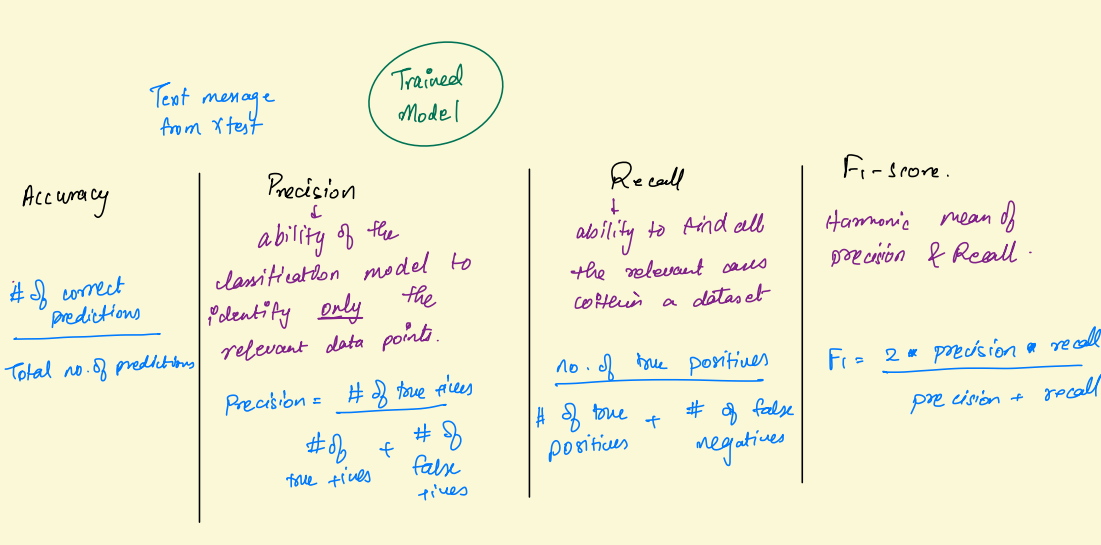 Text message
from Xtest
Trained
Model
Accuracy
# of correct
predictions
Total no. of predictions
Precision
ability of the
classification model to
identify only the
relevant data points.
Precision = # of true +ives
# of true +ives + # of false +ives
Recall
ability to find all
the relevant cases
within a dataset
no. of true positives
# of true positives + # of false negatives
F1-score.
Harmonic mean of
precision & Recall.
F1 = 2 * precision * recall
precision + recall